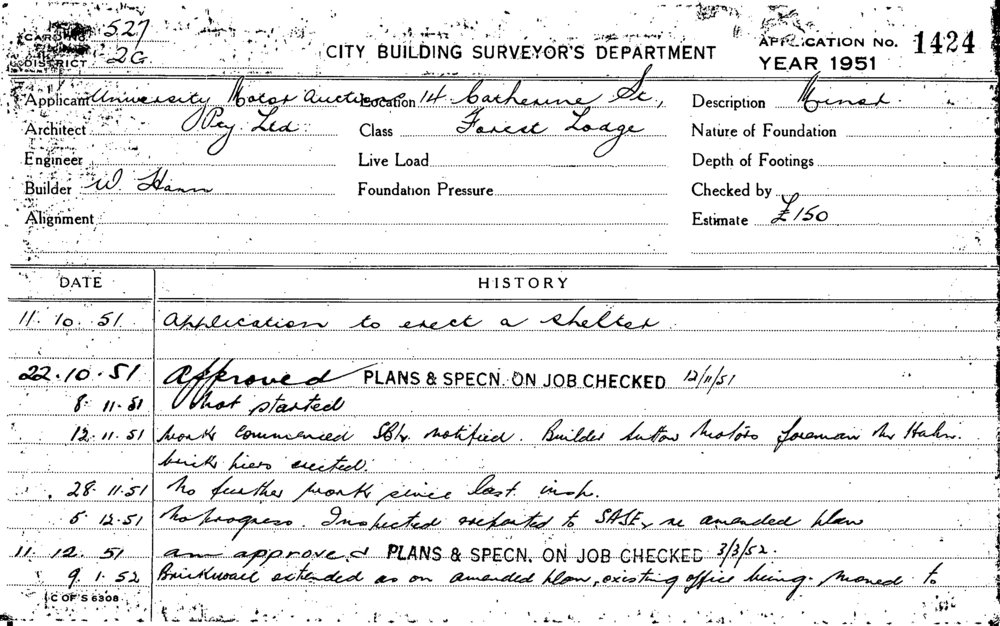 CARD NO. 527
DISTRICT 2G
CITY BUILDING SURVEYOR'S DEPARTMENT
APPLICATION No. 1424
YEAR 1951
Applicant University Motor Auctions Location 14 Catherine St., Description Minor
Architect Pty Ltd. Class Forest Lodge Nature of Foundation
Engineer Live Load Depth of Footings
Builder W. Hann Foundation Pressure Checked by
Alignment Estimate £150
DATE HISTORY
11. 10. 51 Application to erect a shelter
22. 10. 51 Approved PLANS & SPECN. ON JOB CHECKED 12/11/51
8. 11. 51 Not started
12. 11. 51 Work commenced notified. Builder Sutton Motors foreman Mr Hahn.
brick piers erected.
28. 11. 51 No further work since last insp.
5. 12. 51 No progress. Inspected reported to re amended plan
11. 12. 51 am approved PLANS & SPECN. ON JOB CHECKED 3/3/52.
9. 1. 52 Brickwall extended as on amended plan, existing office being moved to
C OF S 6308